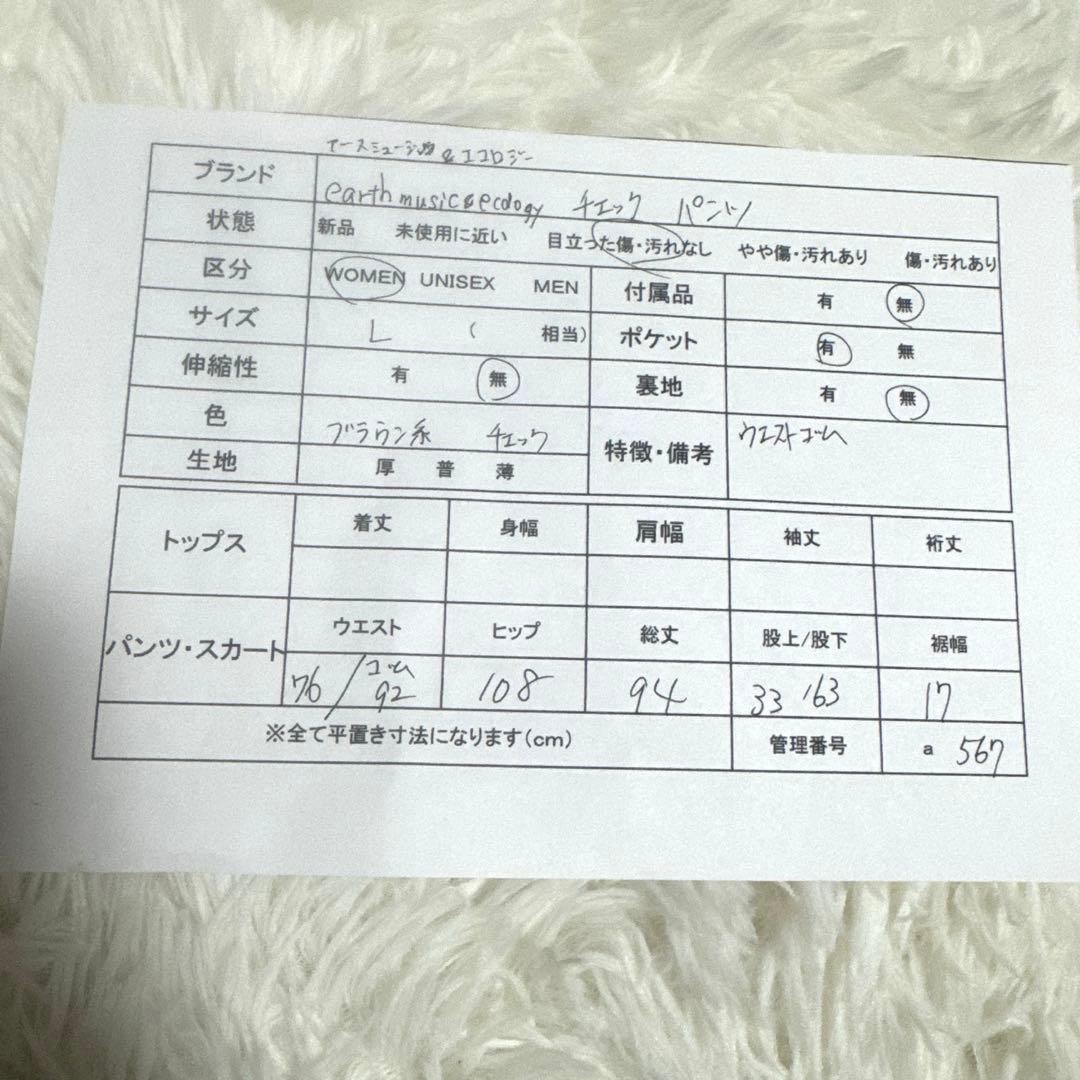 アースミュージック&エコロジー
ブランド earth music&ecology チェック パンツ
状態 新品 未使用に近い 目立った傷・汚れなし やや傷・汚れあり 傷・汚れあり
区分 WOMEN UNISEX MEN 付属品 有 無
サイズ L ( 相当) ポケット 有 無
伸縮性 有 無 裏地 有 無
色 ブラウン系 チェック 特徴・備考 ウエストゴム
生地 厚 普 薄
トップス 着丈 身幅 肩幅 袖丈 裄丈
パンツ・スカート ウエスト ヒップ 総丈 股上/股下 裾幅
76/ゴム92 108 94 33 63 17
※全て平置き寸法になります(cm) 管理番号 a 567